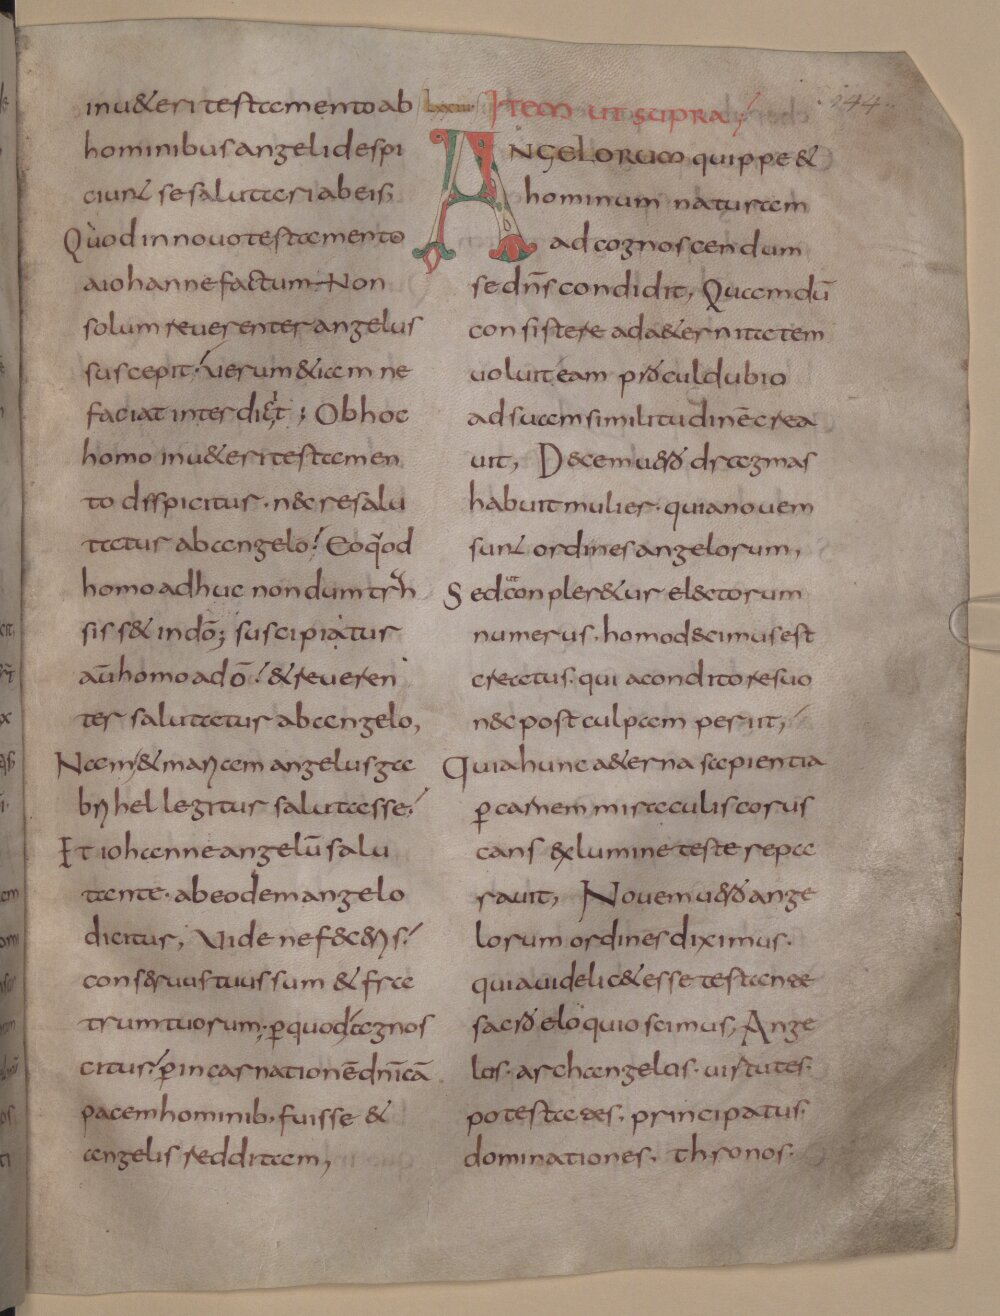 inu&eri testamento ab
hominibus angeli despi
ciunt se salutari ab eis;
Quod in nouo testamento
a iohanne factum Non
solum reuerenter angelus
suscepit. uerum & iam ne
faciat interdicit; Ob hoc
homo in u&eri testamen
to despicitur. nec resalu
tatur ab angelo. Eo qd
homo adhuc nondum tr
sisset in dō; suscipiatur
aū homo a dō. & reueren
ter salutatur ab angelo,
Nam & mariam angelus ga
brihel legitur salutasse.
Et iohanne angelū salu
tante. ab eodem angelo
dicitur, Vide ne feceris.
conseruus tuus sum & fra
trum tuorum; ꝑ quod agnos
citur. ꝑ incarnationē dn̄icā
pacem hominib. fuisse &
angelis redditam,
Item ut supra
ANGELORUM quippe &
hominum naturam
ad cognoscendum
se dn̄s condidit, Quam dū
consistere ad a&ernitatem
uoluit eam procul dubio
ad suam similitudinē crea
uit, Decem uero dragmas
habuit mulier. quia nouem
sunt ordines angelorum,
Sed ut conpler&ur electorum
numerus. homo decimus est
creatus. qui a conditore suo
nec post culpam periit,
Quia hunc a&erna sapientia
ꝑ carnem miraculis corus
cans ex lumine teste repa
rauit, Nouem uero ange
lorum ordines diximus.
quia uidelic& esse testante
sacro eloquio scimus, Ange
los. archangelos. uirtutes.
potestates. principatus.
dominationes. thronos.
244